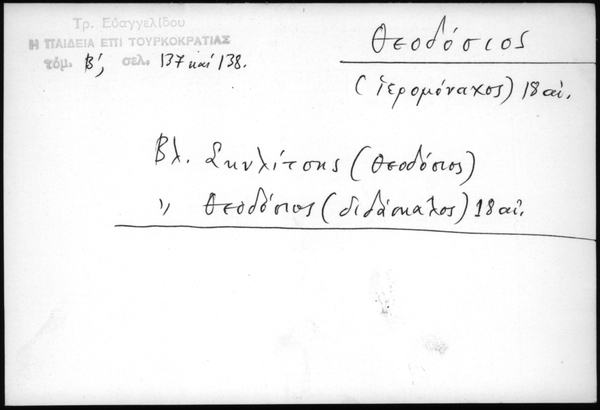 Τρ. Εὐαγγελίδου
Η ΠΑΙΔΕΙΑ ΕΠΙ ΤΟΥΡΚΟΚΡΑΤΙΑΣ
τόμ. Β', σελ. 137 καὶ 138.
Θεοδόσιος
(ἱερομόναχος) 18 αἰ.
Βλ. Σκυλίτσης (Θεοδόσιος)
〃 Θεοδόσιος (διδάσκαλος) 18 αἰ.